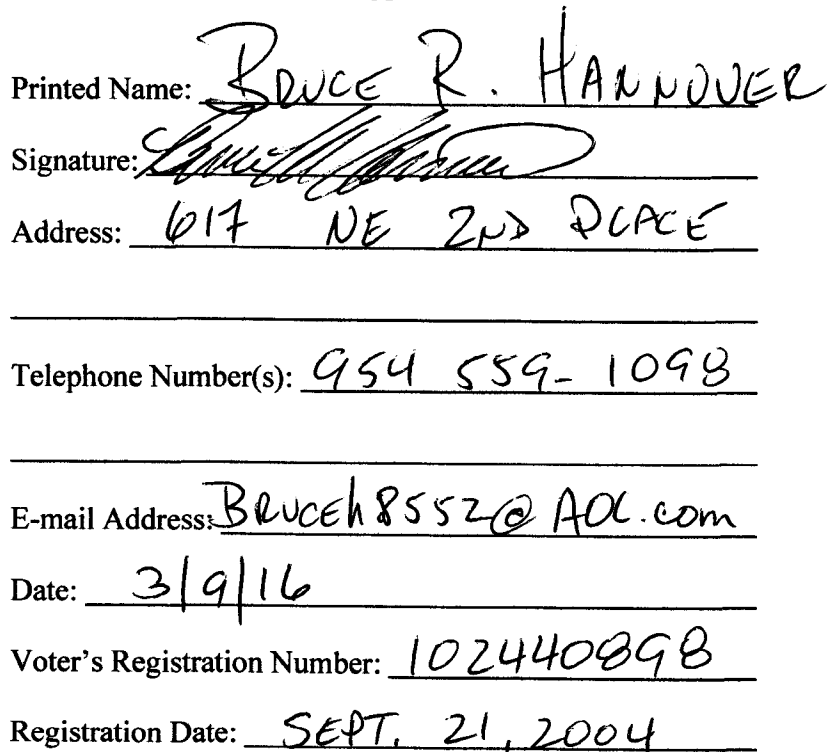 Printed Name: BRUCE R. HANNOVER
Signature:
Address: 617 NE 2ND PLACE
Telephone Number(s): 954 559-1098
E-mail Address: BRUCEh8552@AOL.com
Date: 3/9/16
Voter's Registration Number: 102440898
Registration Date: SEPT. 21, 2004